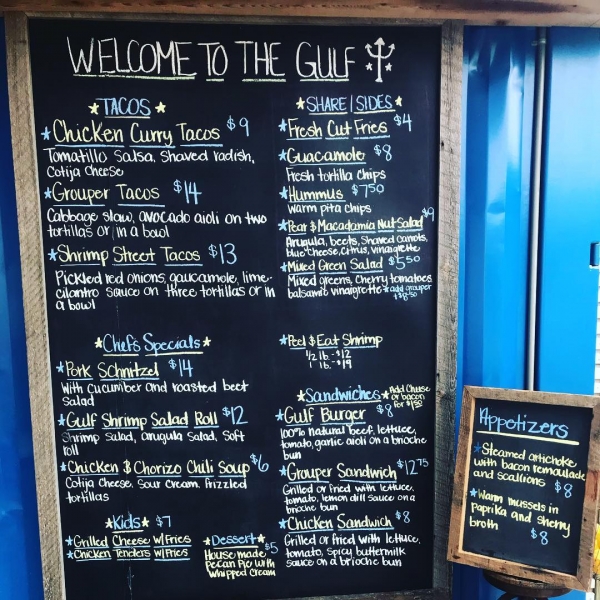 WELCOME TO THE GULF
TACOS
Chicken Curry Tacos $9
Tomatillo Salsa, Shaved radish,
Cotija Cheese
Grouper Tacos $14
Cabbage slaw, avocado aioli on two
tortillas or in a bowl
Shrimp Street Tacos $13
Pickled red onions, guacamole, lime-
cilantro sauce on three tortillas or in
a bowl
Chef's Specials
Pork Schnitzel $14
With cucumber and roasted beet
Salad
Gulf Shrimp Salad Roll $12
Shrimp Salad, arugula Salad, Soft
roll
Chicken & Chorizo Chili Soup $6
Cotija Cheese, sour cream, frizzled
tortillas
Kids $7
Grilled Cheese w/Fries
Chicken Tenders w/Fries
Dessert
House made $5
Pecan Pie with
Whipped Cream
SHARE|SIDES
Fresh Cut Fries $4
Guacamole $8
Fresh tortilla chips
Hummus $7.50
Warm pita chips
Pear & Macadamia Nut Salad $9
Arugula, beets, Shaved carrots,
blue cheese, citrus, vinaigrette
Mixed Green Salad $5.50
Mixed greens, Cherry tomatoes
balsamic vinaigrette *add grouper
+$8.50
Peel & Eat Shrimp
1/2 lb. - $12
1 lb. - $19
Sandwiches
Add Cheese
or bacon
for $1.50
Gulf Burger $8
100% natural beef, lettuce,
tomato, garlic aioli on a brioche
bun
Grouper Sandwich $12.75
Grilled or fried with lettuce,
tomato, lemon dill sauce on a
brioche bun
Chicken Sandwich $8
Grilled or fried with lettuce,
tomato, spicy buttermilk
sauce on a brioche bun
Appetizers
Steamed artichoke
with bacon remoulade
and scallions $8
Warm mussels in
paprika and sherry
broth $8